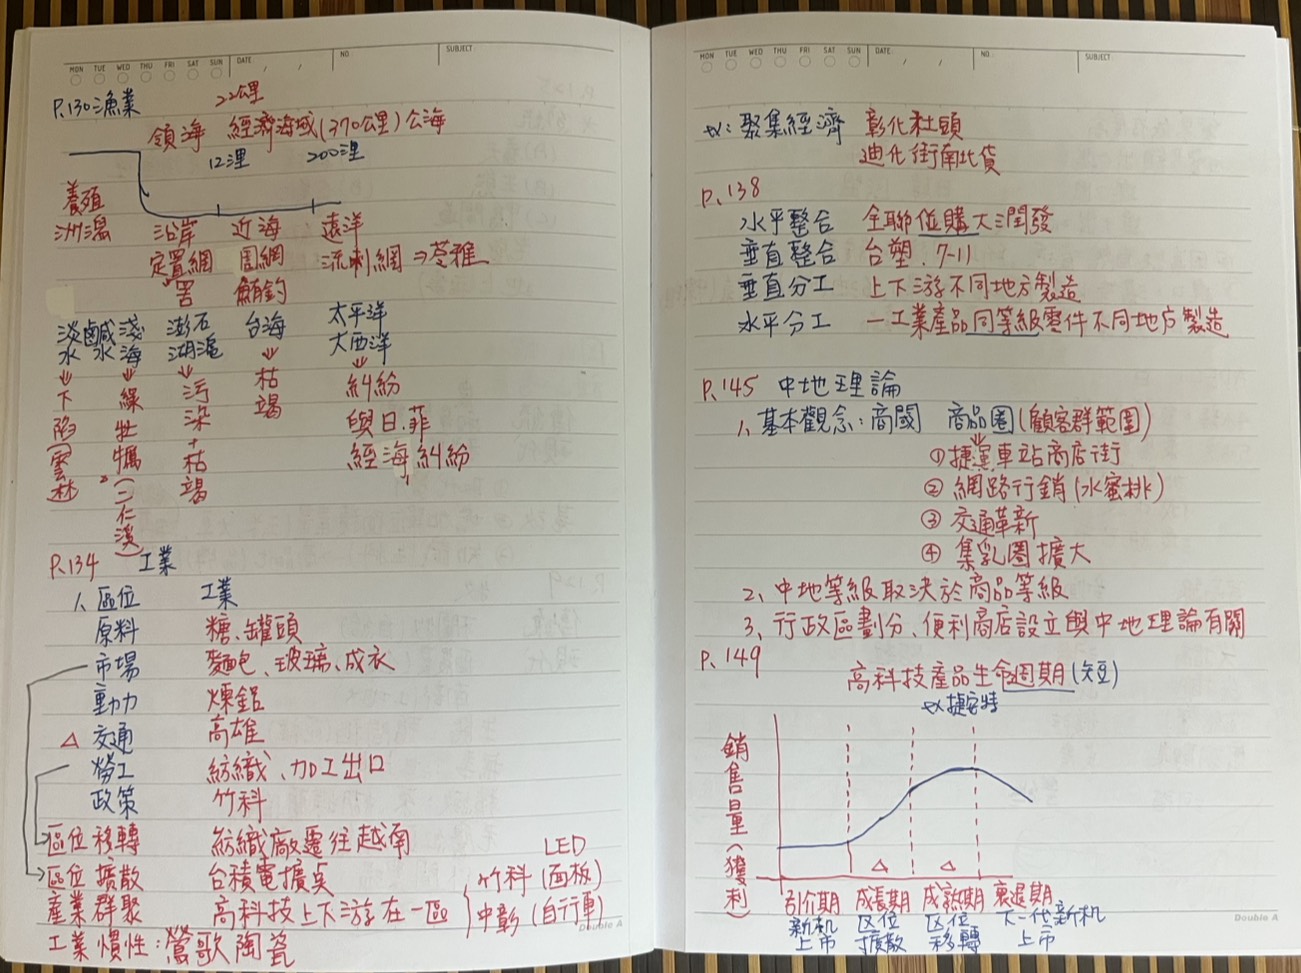 MON TUE WED THU FRI SAT SUN DATE / / NO. SUBJECT
P.130漁業 22公里
領海 經濟海域(370公里)公海
12浬 200浬
養殖 沿岸 近海 遠洋
定置網 圍網 流刺網⇒苓雅
罟 鮪釣
淡水 鹹水 淺海 澎湖石滬 台海 太平洋
大西洋
下陷(雲林 綠牡蠣(二仁溪) 污染+枯竭 枯竭 糾紛
與日.菲
經海糾紛
P.134 工業
1、區位 工業
原料 糖、罐頭
市場 麵包、玻璃、成衣
動力 煉鋁
△ 交通 高雄
勞工 紡織、加工出口
政策 竹科
區位移轉 紡織廠遷往越南 LED
區位擴散 台積電擴點 竹科(面板)
產業群聚 高科技上下游在一區 中彰(自行車)
工業慣性:鶯歌陶瓷
Double A
MON TUE WED THU FRI SAT SUN DATE / / NO. SUBJECT
ex: 聚集經濟 彰化社頭
迪化街南北貨
P.138
水平整合 全聯併購大潤發
垂直整合 台塑.7-11
垂直分工 上下游不同地方製造
水平分工 一工業產品同等級零件不同地方製造
P.145 中地理論
1、基本觀念:商閾 商品圈(顧客群範圍)
①捷運車站商店街
② 網路行銷(水蜜桃)
③ 交通革新
④ 集乳圈擴大
2、中地等級取決於商品等級
3、行政區劃分、便利商店設立與中地理論有關
P.149
高科技產品生命週期(短)
ex捷安特
銷售量(獲利)
△ △
引介期 成長期 成熟期 衰退期
新机上市 区位擴散 区位移轉 下一代新机上市
Double A